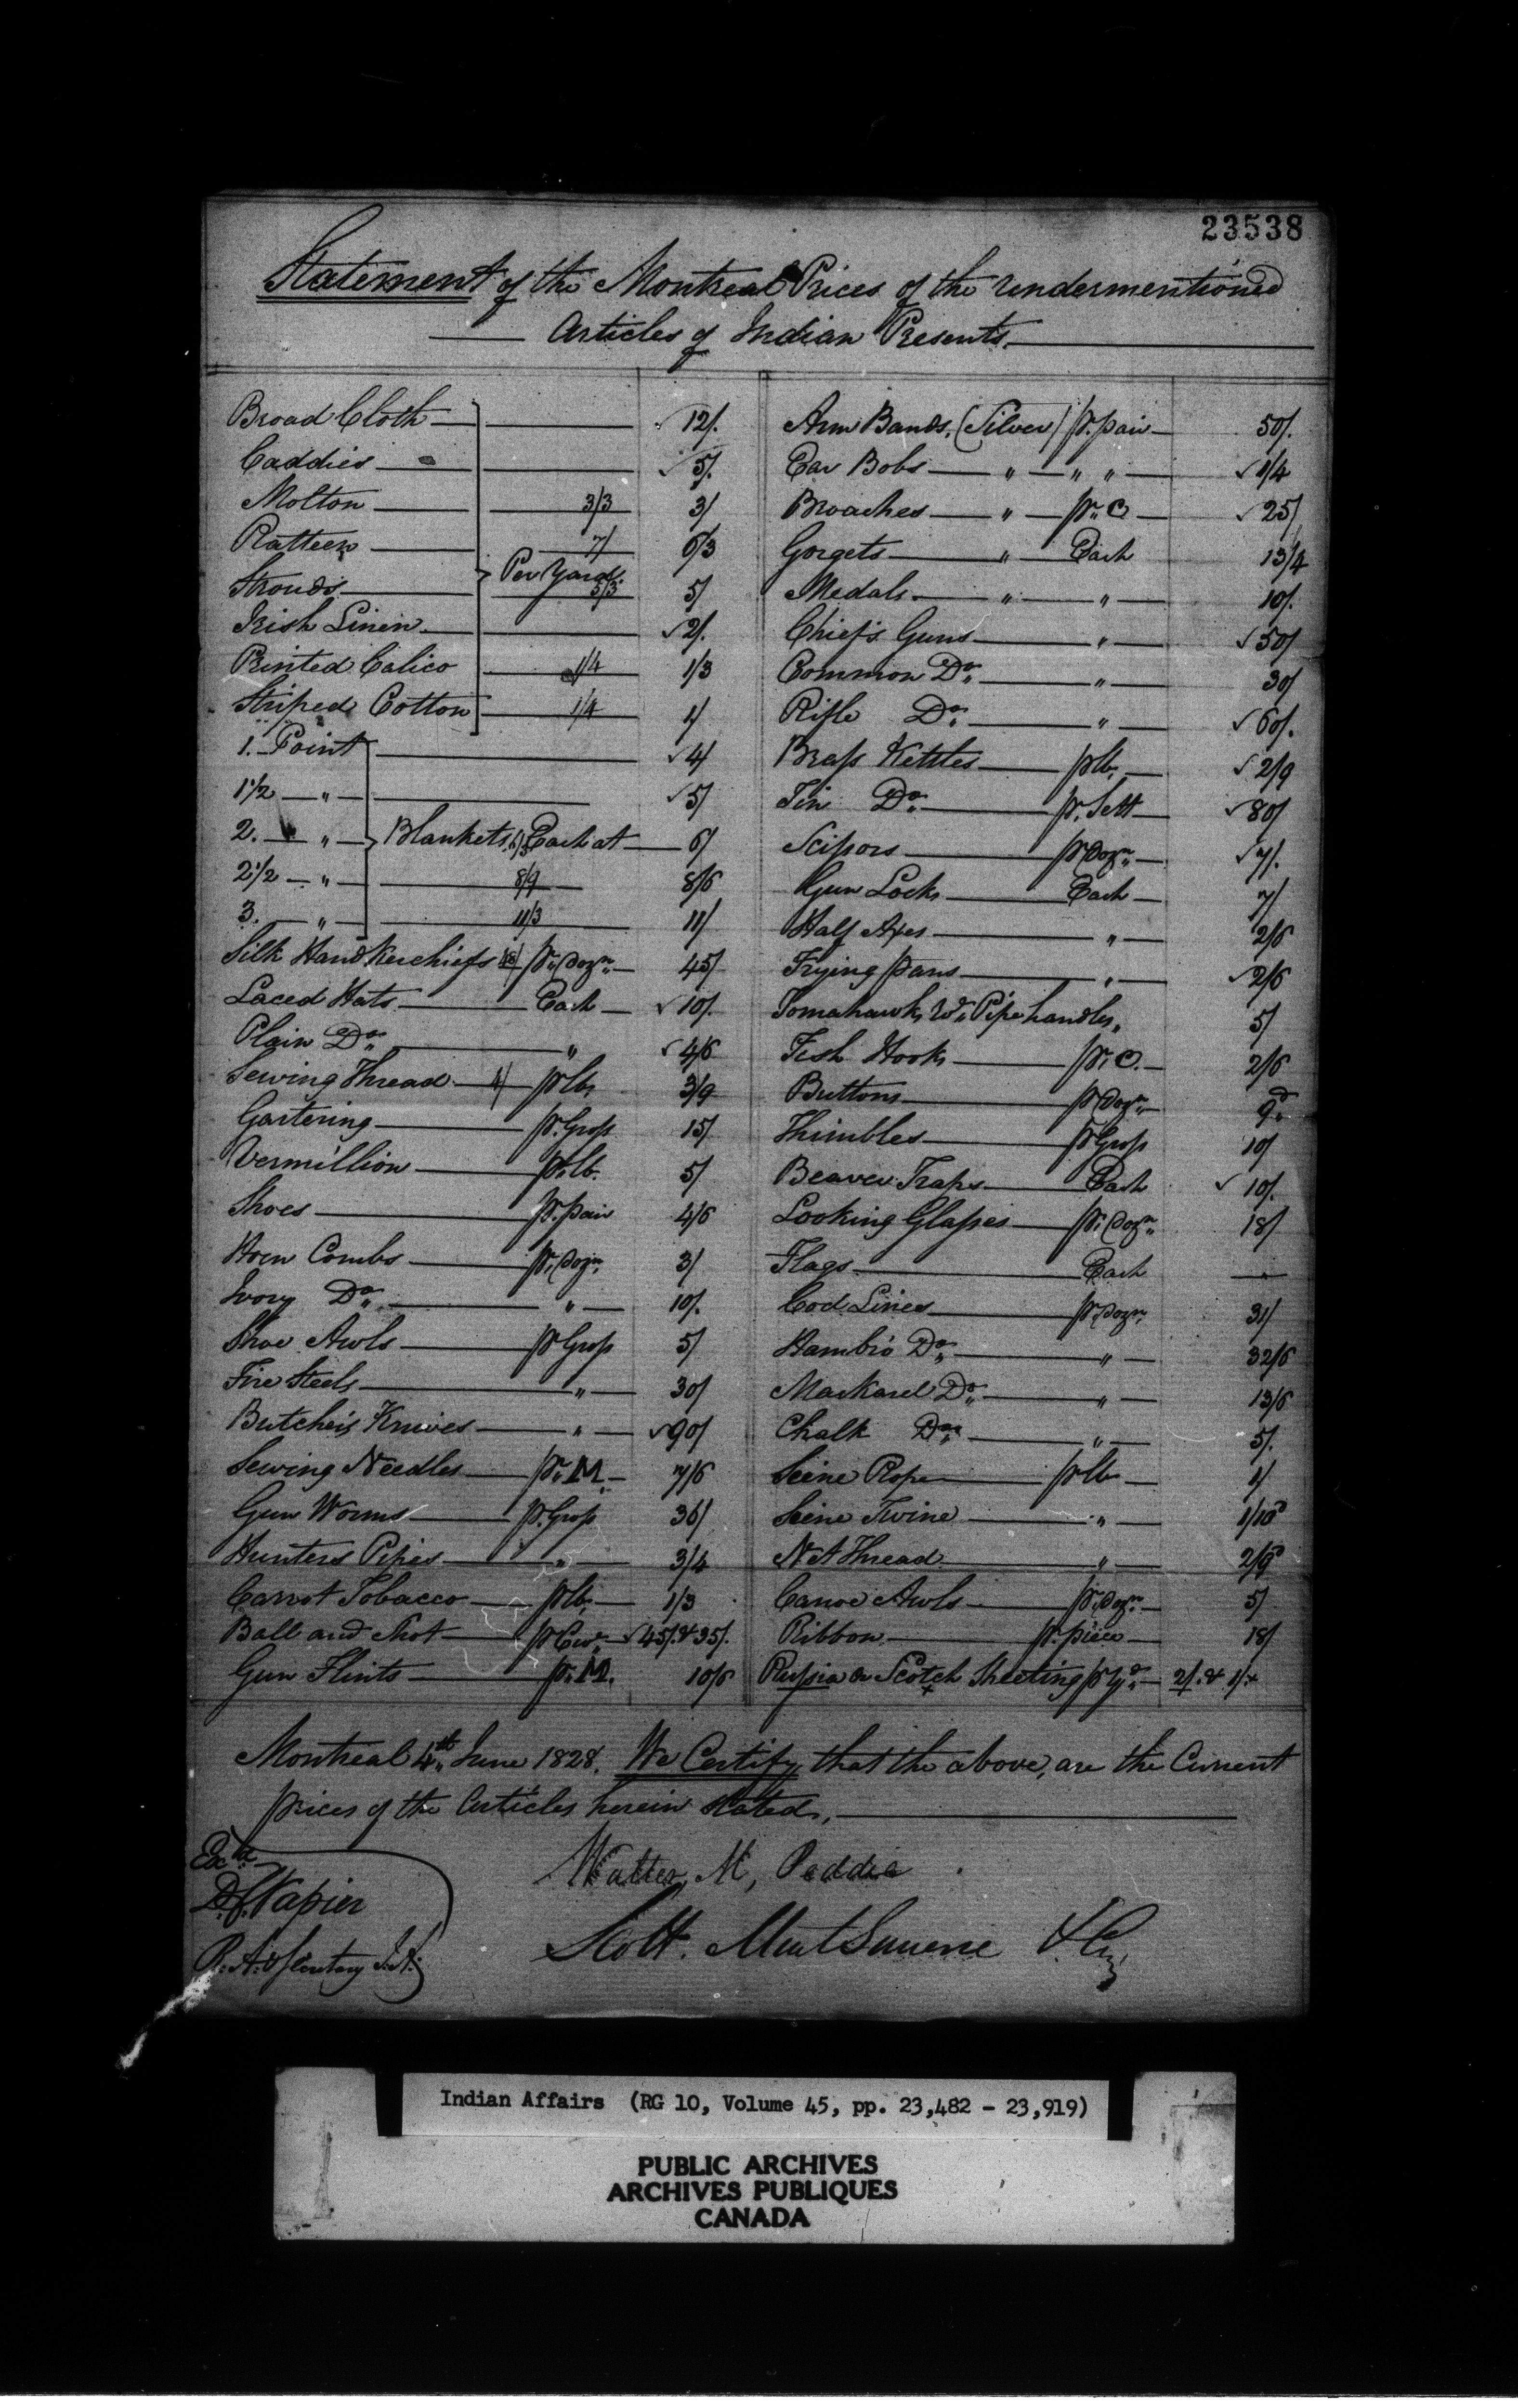 23538
Statement of the Montreal Prices of the Undermentioned
Articles of Indian Presents.
Broad Cloth 12/.
Caddies 5/.
Molton 3/3 3/
Ratteen 7/ 6/3
Per Yard.
Strouds 5/3 5/
Irish Linen 2/.
Printed Calico 1/4 1/3
Striped Cotton 1/4 1/
1. Point 4/
1 1/2 " 5/
2. " Blankets, Each at 6/
2 1/2 " 8/9 8/6
3. " 11/3 11/
Silk Handkerchiefs 48/ pr. Dozn. 45/
Laced Hats Each 10/.
Plain Do. " 4/6
Sewing Thread 4/ pr lb. 3/9
Gartering pr. Gross 15/
Vermillion pr. lb. 5/
Shoes pr. pair 4/6
Horn Combs pr. Dozn. 3/
Ivory Do. " 10/.
Shoe Awls pr Gross 5/
Fire Steels " 30/
Butcher's Knives " 90/
Sewing Needles pr. M. 7/6
Gun Worms pr. Gross 36/
Hunters Pipes " 3/4
Carrot Tobacco pr lb. 1/3
Ball and Shot pr Cwt. 45/. & 35/.
Gun Flints pr. M. 10/6
Arm Bands, (Silver) pr. pair 50/.
Ear Bobs " " " 1/4
Broaches " pr. C 25/
Gorgets " Each 13/4
Medals " " 10/.
Chief's Guns " 50/
Common Do. " 30/
Rifle Do. " 60/.
Brass Kettles pr lb. 2/9
Tin Do. pr. Sett 80/
Scissors pr Dozn. 7/.
Gun Locks Each 7/
Half Axes " 2/6
Frying pans " 2/6
Tomahawks Wt. Pipe handles " 5/
Fish Hooks pr. C. 2/6
Buttons pr Dozn. 9d.
Thimbles pr Gross 10/
Beaver Traps Each 10/.
Looking Glasses pr. Dozn. 18/
Flags Each
Cod Lines pr. Dozn. 31/
Hambro Do. " 32/6
Mackarel Do. " 13/6
Chalk Do. " 5/.
Seine Rope pr lb. 1/
Seine Twine " 1/10d
Net Thread " 2/9d
Canoe Awls pr. Dozn. 5/
Ribbon pr. piece 18/
Russia or Scotch Sheeting pr Yd. 2/. & 1/.
Montreal 4th. June 1828. We Certify, that the above, are the Current
prices of the Articles herein stated.
Exd.
D. C. Napier
R. A. & Secretary I. A.
Walter M. Peddie
Scott. & Co.
Indian Affairs (RG 10, Volume 45, pp. 23,482 - 23,919)
PUBLIC ARCHIVES
ARCHIVES PUBLIQUES
CANADA